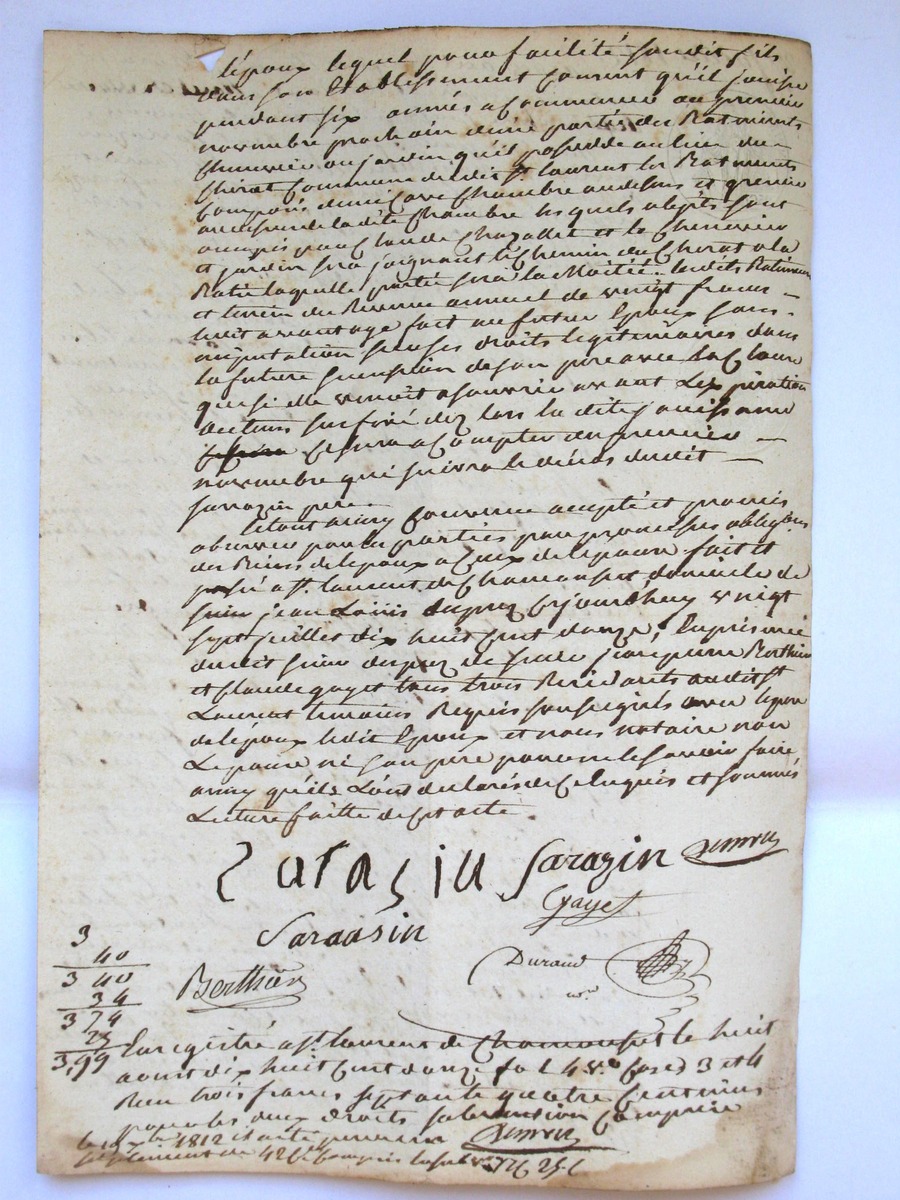 l'époux lequel pour facilité sondit fils
dans son Etablissement consent qu'il jouisse
pendant six années a Commencer au premier
novembre prochain d'une partie des Batiments
Chenevier ou jardin qu'il possede au lieu du
Cherat Commune dudit St. laurent les Batiments
Composés d'une Cave Chambre audessus et grenier
audessus de la dite Chambre lesquels objets sont
occupés par Claude Chazallet et le Chenevier
et jardin sera joignant le Chemin du Cherat a la
Ratie laquelle partie sera la Moitié. lesdits Batiments
et terrein du Revenu annuel de vingt francs
ledit avantage fait au futur Epoux sans
imputation sur ses droits legitimaires dans
la future succession de son pere avec la Clause
que si elle venoit a s'ouvrir avant l'expiration
du tems susfixé dez lors la dite jouissance
Cessera a Compter du premier
novembre qui suivra le déces dudit
sarrazin pere.
Etant ainsy Convenu accepté et promis
observer par les parties par promesses obligations
des Biens de l'epoux a Ceux de l'epouse fait et
passé a St. laurent de Chamousset domicile de
sieur jean Louis dupuy Cejourdhuy vingt
sept juillet dix huit Cent douze, En presence
dudit sieur dupuy de sieur jean pierre Berthier
et Claude gayet tous trois Residants audit St
Laurent temoins Requis soussignés avec le pere
de l'époux ledit Epoux et nous notaire non
L'epouse ni son pere pour ne le savoir faire
ainsy qu'ils L'ont declaré de Ce Enquis et sommés
Lecture faitte de Cet acte
Sarasin Sarazin
Gayet
Saraasin
Berthier
Durand
nre
3
40
3 40
34
3 74
25
3,99
Enregistré a St. laurent de Chamousset le huit
aoust dix huit Cent douze fo 148 vo Cases 3 et 4
Recu trois francs septante quatre Centimes
pour les deux droits subvention Comprise
1812
supplement de 42 C. Compris la sub.